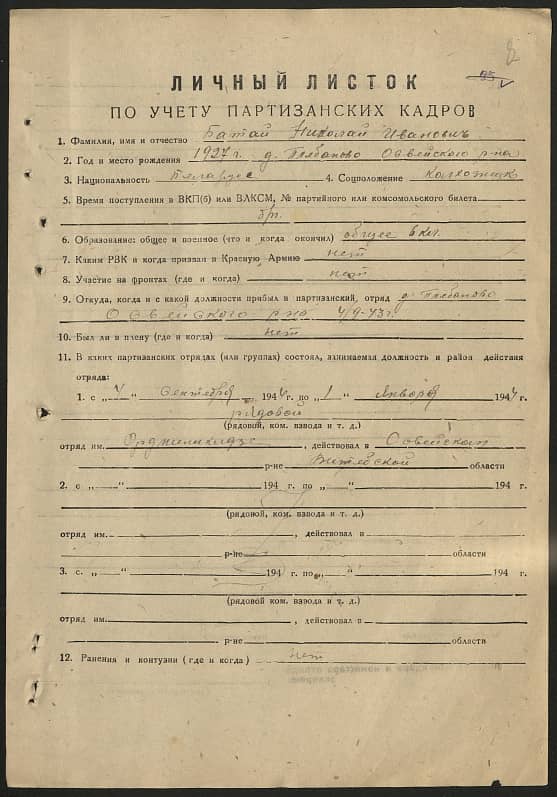 95
ЛИЧНЫЙ ЛИСТОК
ПО УЧЕТУ ПАРТИЗАНСКИХ КАДРОВ
1. Фамилия, имя и отчество Батай Николай Иванович
2. Год и место рождения 1927 г. д. Плебаново Освейского р-на
3. Национальность Беларус 4. Соцположение колхозник
5. Время поступления в ВКП(б) или ВЛКСМ, № партийного или комсомольского билета
6. Образование: общее и военное (что и когда окончил) общее 6 кл.
7. Каким РВК и когда призван в Красную Армию нет
8. Участие на фронтах (где и когда) нет
9. Откуда, когда и с какой должности прибыл в партизанский отряд д. Плебаново
Освейского р-на 4/9-43 г.
10. Был ли в плену (где и когда) нет
11. В каких партизанских отрядах (или группах) состоял, занимаемая должность и район действия
отряда:
1. с „4“ сентября 194 г. по „1“ января 1944 г.
рядовой
(рядовой, ком. взвода и т. д.)
отряд им. Орджоникидзе, действовал в Освейском
р-не Витебской области
2. с „ “ 194 г. по „ “ 194 г.
(рядовой, ком. взвода и т. д.)
отряд им. , действовал в
р-не области
3. с „ “ 194 г. по „ “ 194 г.
(рядовой ком. взвода и т. д.)
отряд им. , действовал в
р-не области
12. Ранения и контузии (где и когда) нет